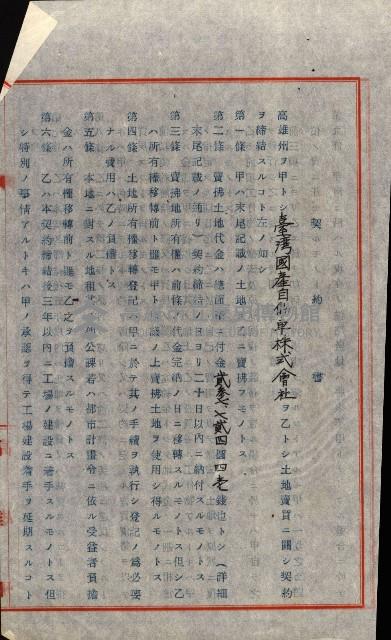 契約書
高雄州ヲ甲トシ臺灣國產自働車株式會社ヲ乙トシ土地賣買ニ關シ契約
ヲ締結スルコト左ノ如シ
第一條 甲ハ末尾記載ノ土地ヲ乙ニ賣拂フモノトス
第二條 賣拂土地代金ハ總面積ニ付金 也トシ（詳細
末尾記載ノ通リ）契約締結ノ日ヨリ二十日以內ニ納付スルモノトス
第三條 賣拂地所有權ハ前條ノ代金完納ノ日ニ移轉スルモノトス但シ乙
ハ所有權移轉前ト雖モ甲ト協議ノ上賣拂土地ヲ使用シ得ルモノトス
第四條 土地所有權移轉登記ハ甲ニ於テ其ノ手續ヲ執行シ登記ノ爲必要
ナル費用ハ乙ノ負擔トス
第五條 本地ニ對スル地租其ノ他公課若ハ都市計畫令ニ依ル受益者負擔
金ハ所有權移轉前ト雖モ乙之ヲ負擔スルモノトス
第六條 乙ハ本契約締結後三年以內ニ工場ノ建設ニ着手スルモノトス但
シ特別ノ事情アルトキハ甲ノ承認ヲ得テ工場建設着手ヲ延期スルコト